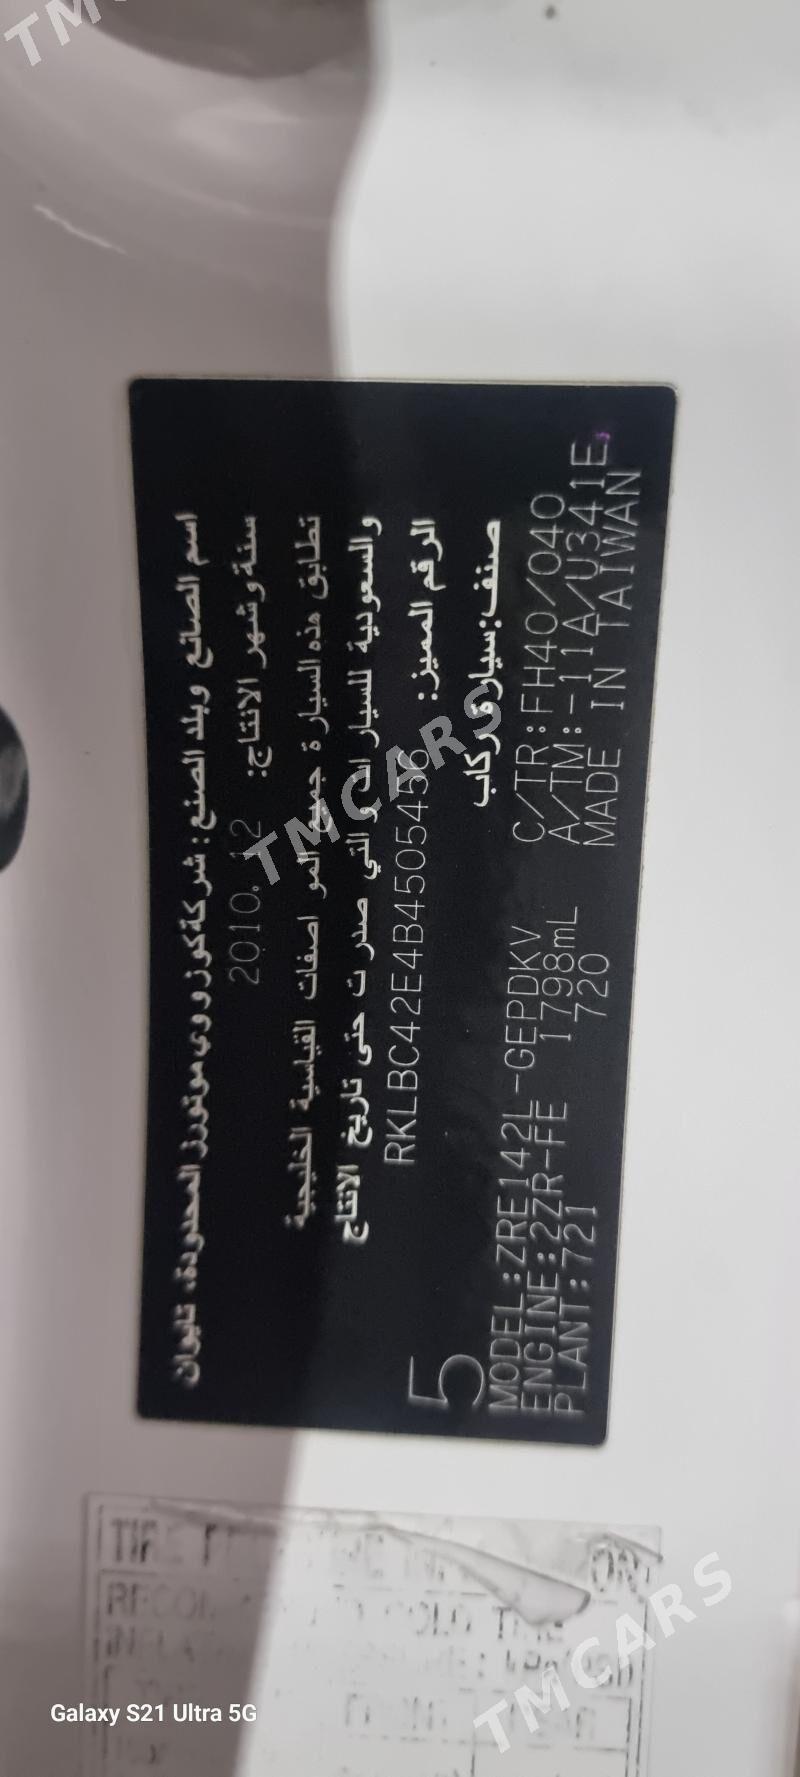 اسم الصانع وبلد الصنع: شركة كوزووي موتورز المحدودة، تايوان
سنة وشهر الانتاج: 2010.12
تطابق هذه السيارة جميع المواصفات القياسية الخليجية
والسعودية للسيارات والتي صدرت حتى تاريخ الانتاج
الرقم المميز: RKLBC42E4B4505456
صنف: سيارة ركاب
5
MODEL:ZRE142L-GEPDKV C/TR:FH40/040
ENGINE:2ZR-FE 1798mL A/TM:-11A/U341E
PLANT:721 720 MADE IN TAIWAN
COLD
Galaxy S21 Ultra 5G
TMCARS
TMCARS